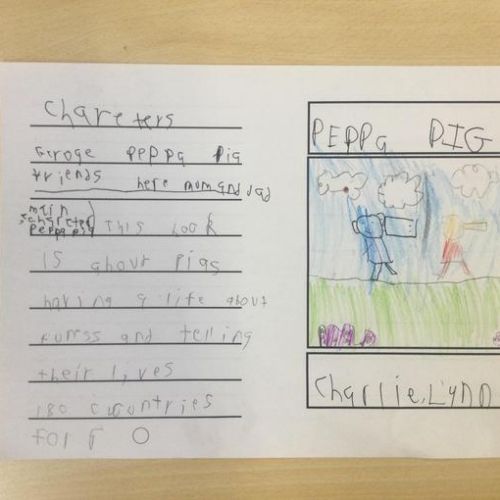 Chareters
Goroge PEPPa Pig
friends here mum and dad
main
character
Peppa pig
This book
is about Pigs
having a life about
and telling
their lives
180 countries
for
PEPPa PIG
Charlie, Lynn